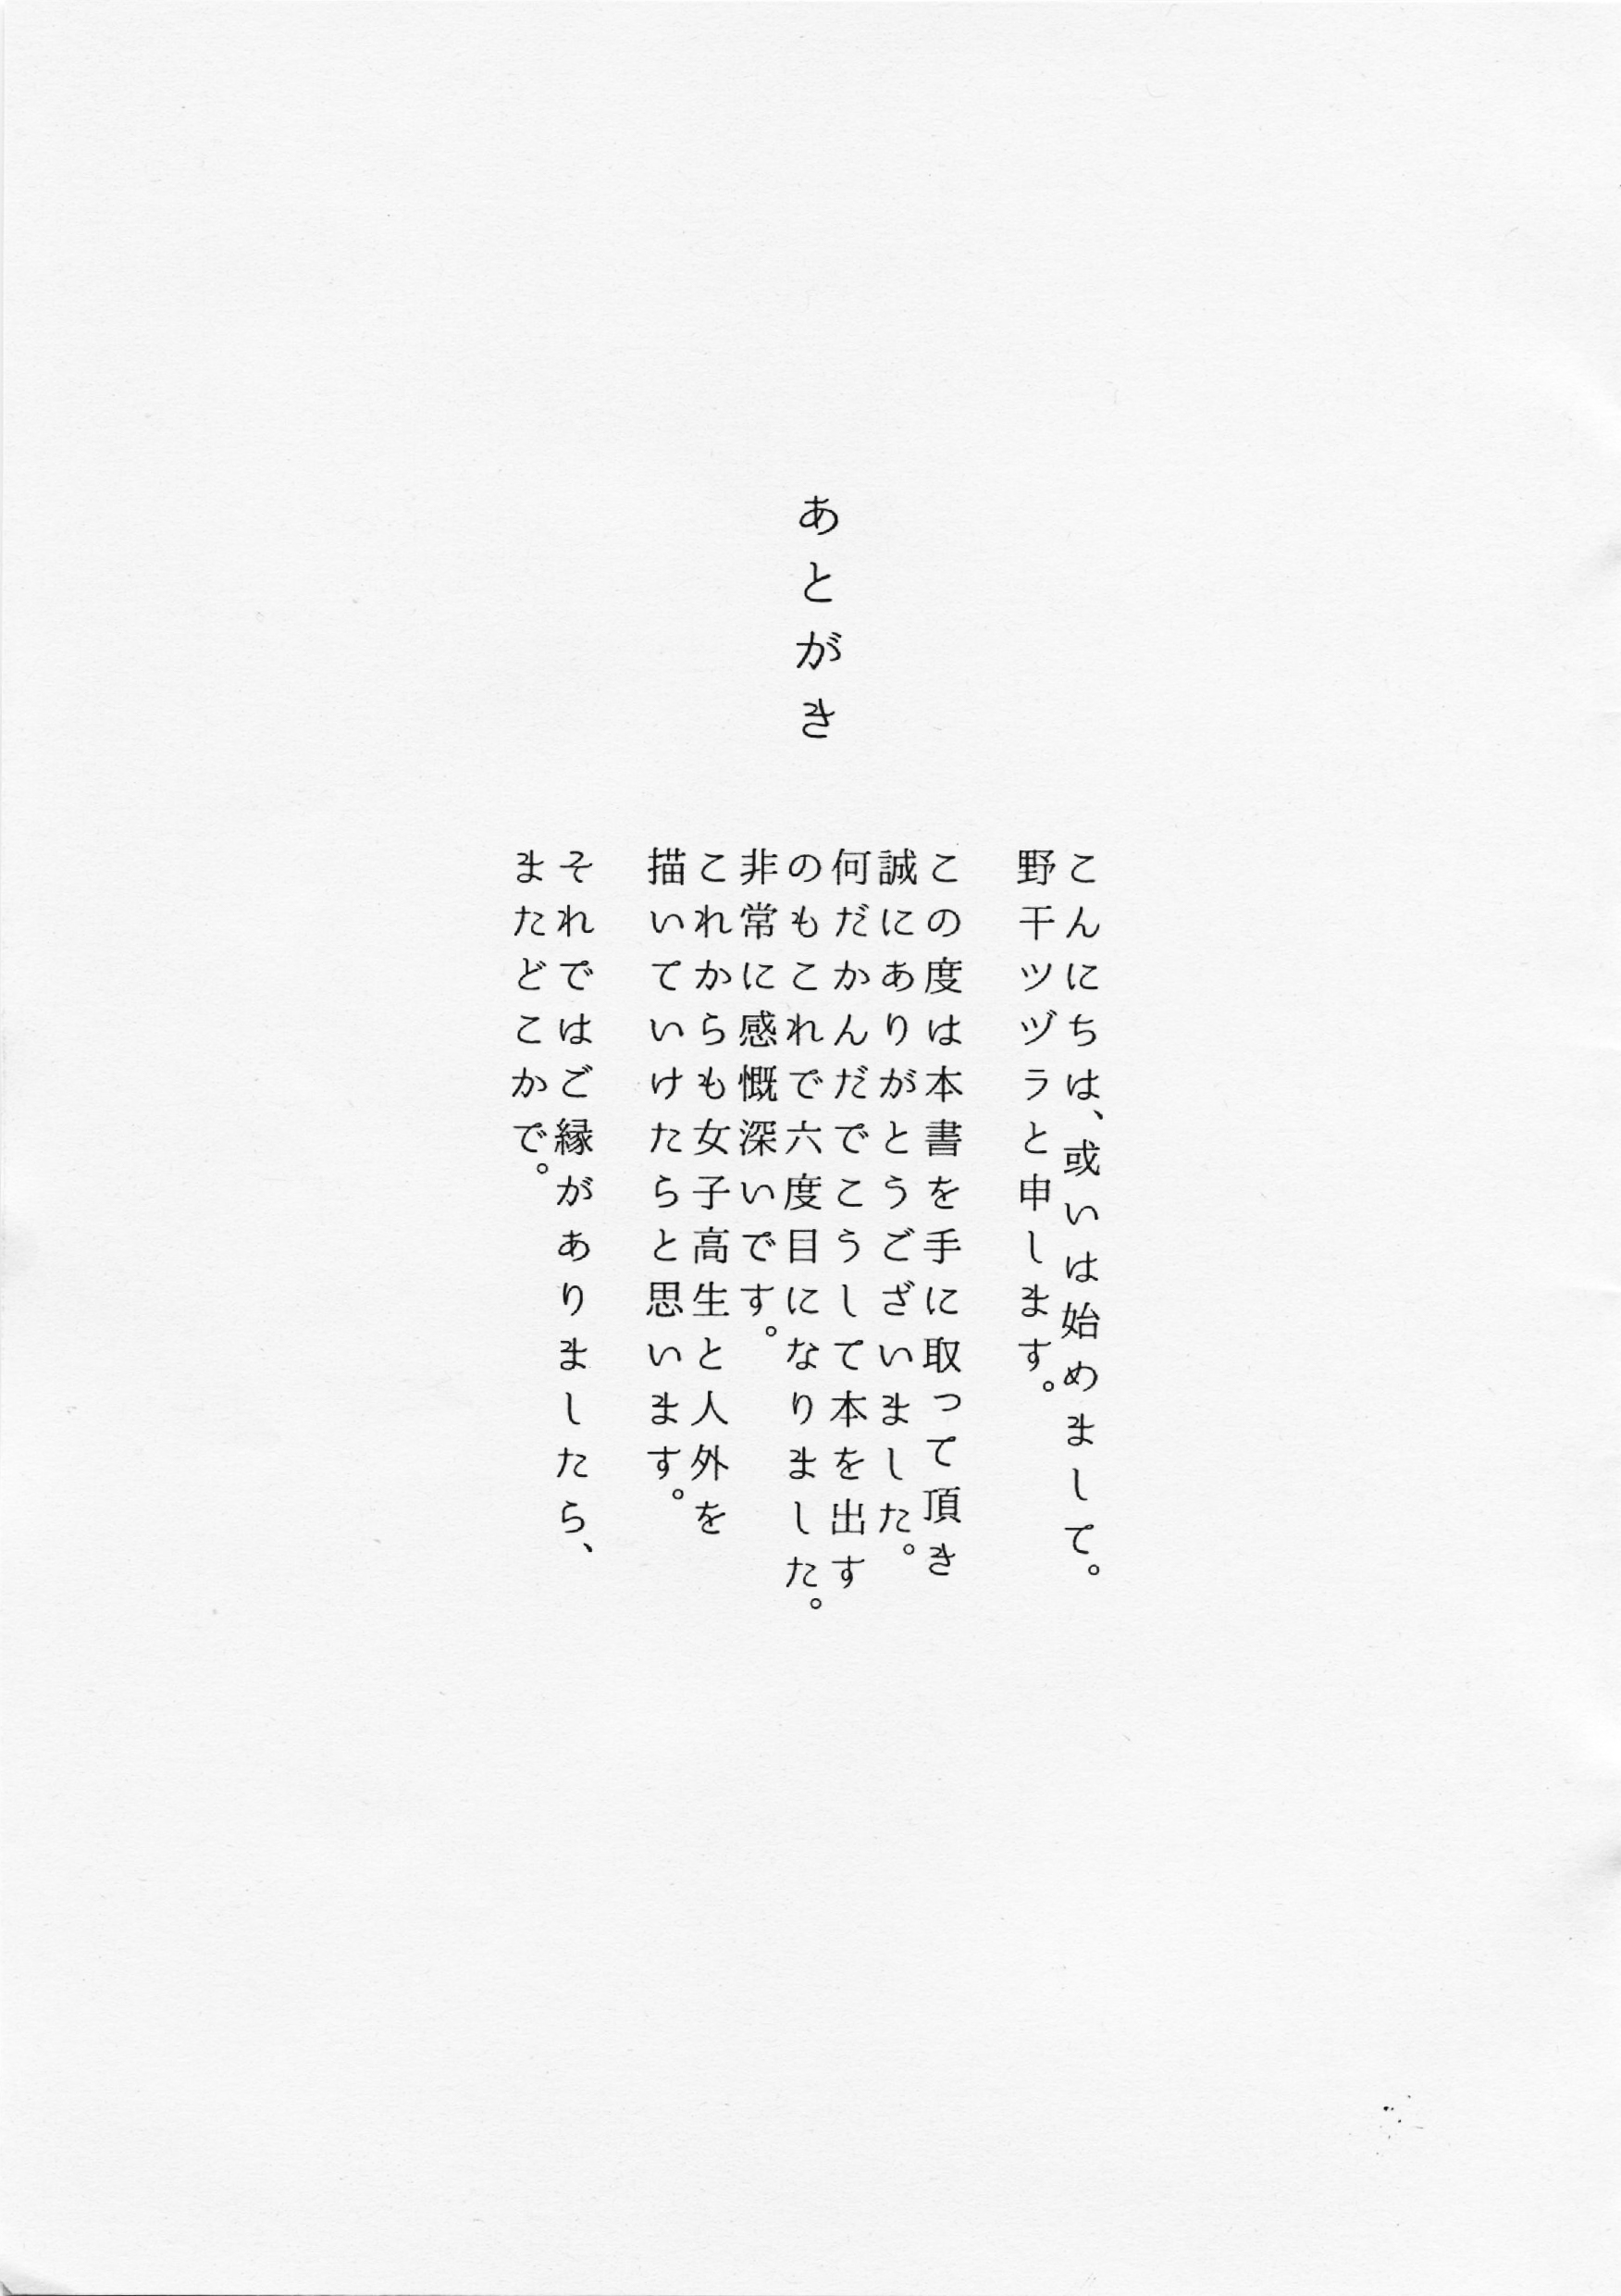 あとがき
こんにちは、或いは始めまして。
野干ツヅラと申します。
この度は本書を手に取って頂き
誠にありがとうございました。
何だかんだでこうして本を出す
のもこれで六度目になりました。
非常に感慨深いです。
これからも女子高生と人外を
描いていけたらと思います。
それではご縁がありましたら、
またどこかで。